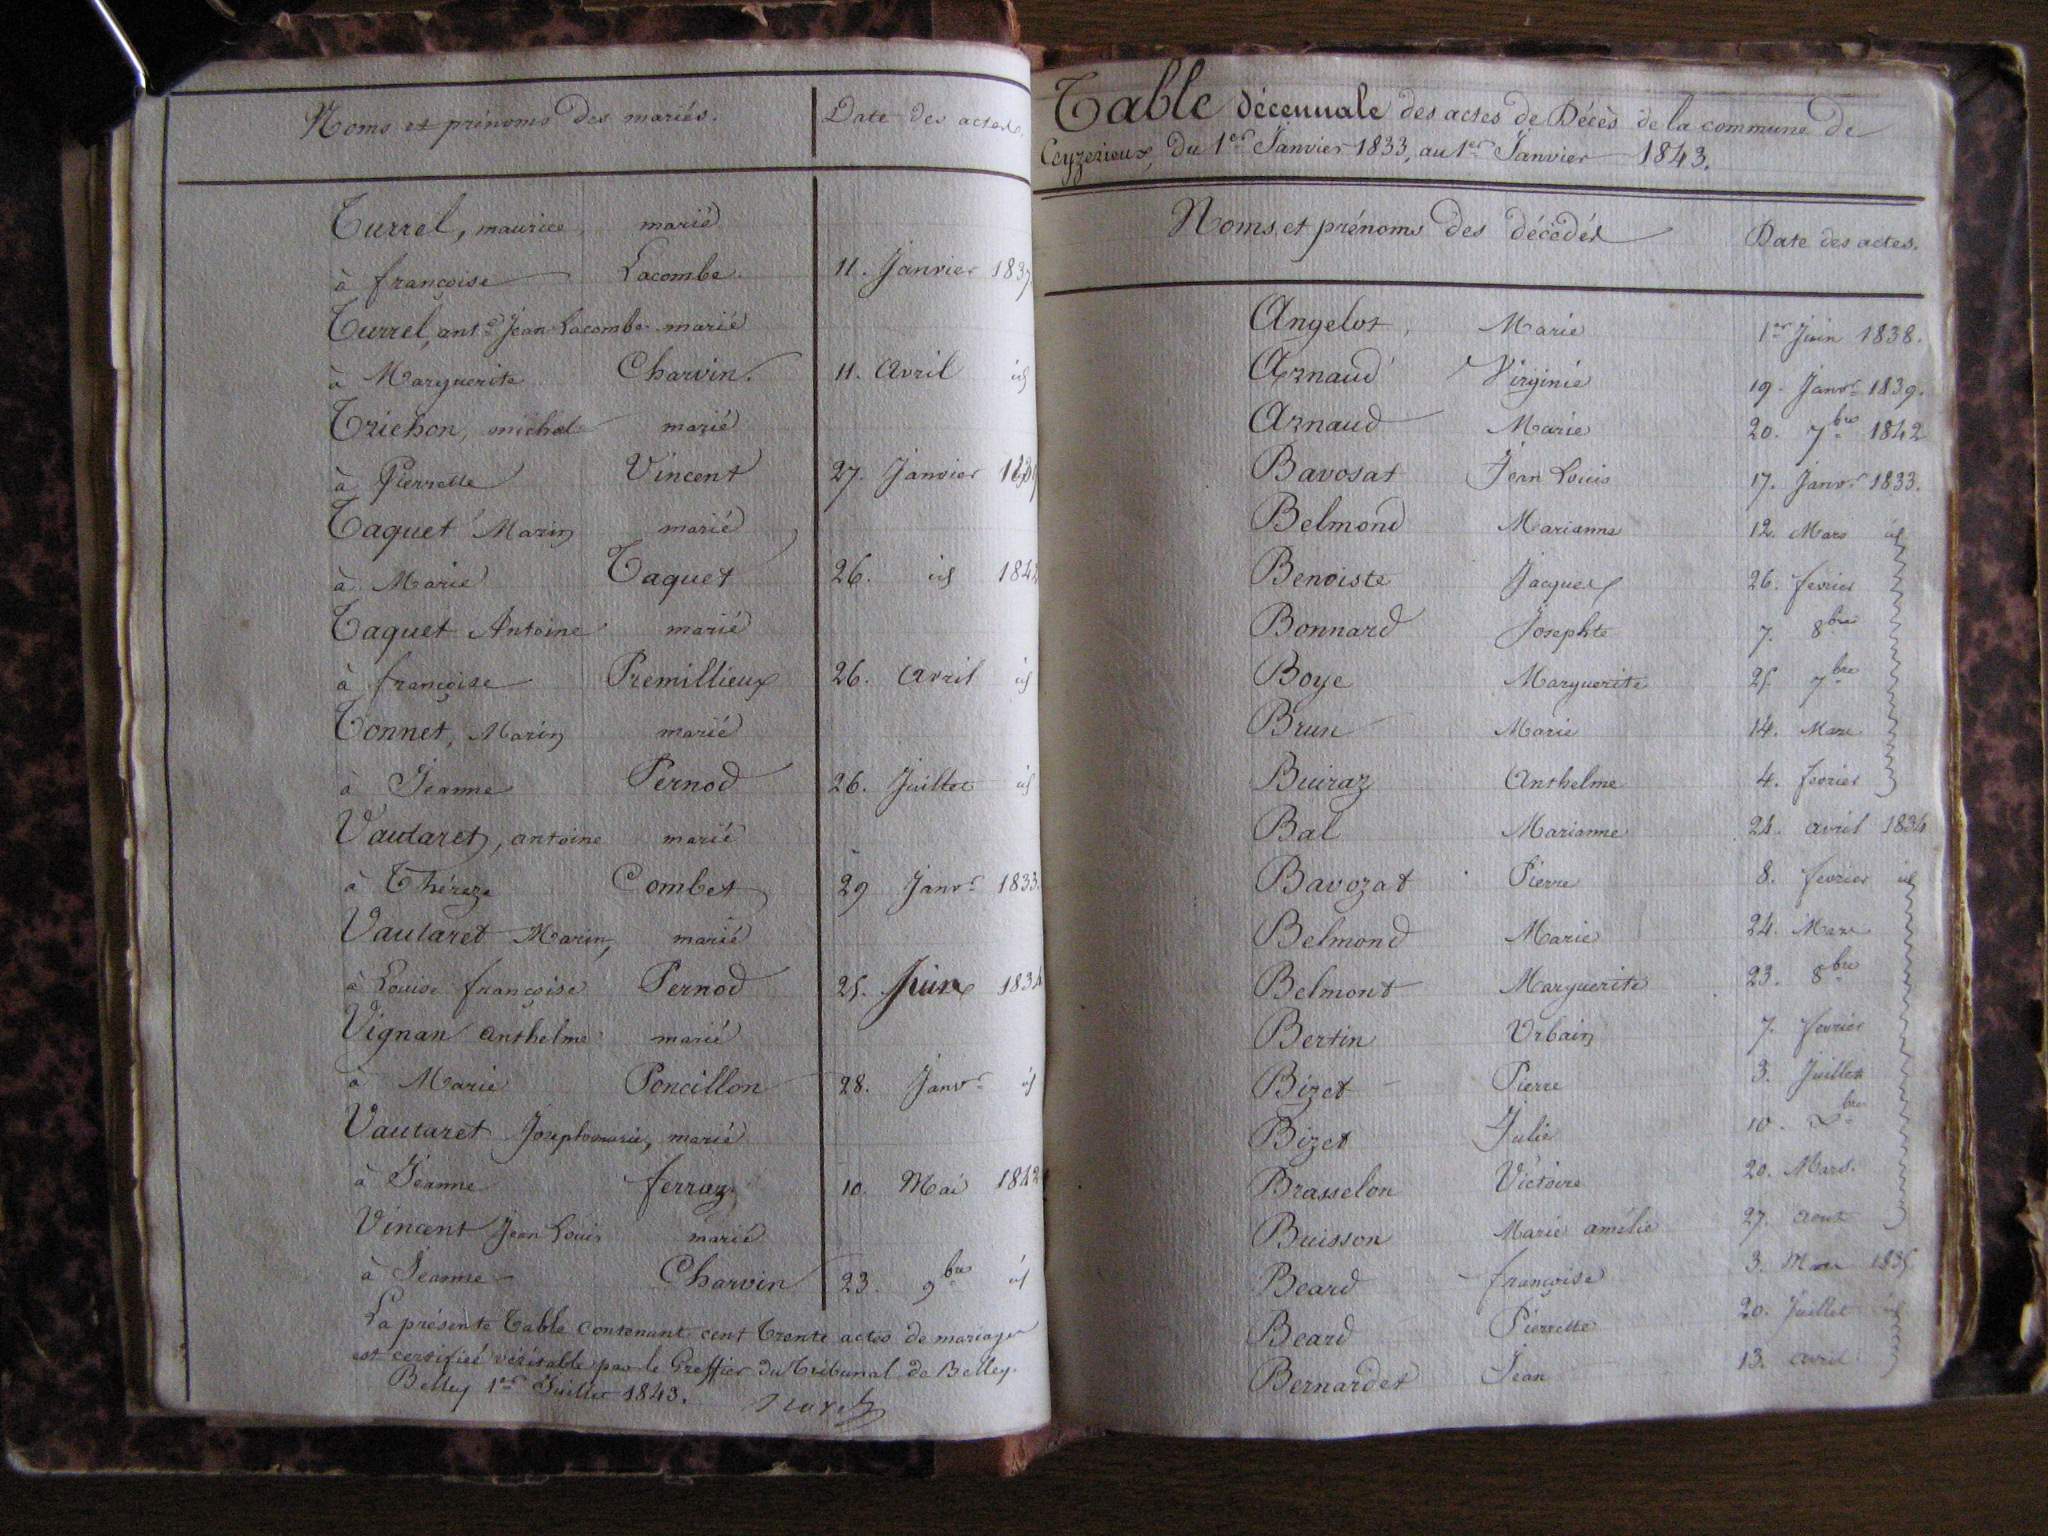 Noms et prénoms des mariés. Date des actes.
Turrel, maurice, marié
à françoise Lacombe. 11. Janvier 1837
Turrel, ant.e Jean Lacombe marié
à Marguerite Charvin. 11. Avril id
Trichon, michel marié
à Pierrette Vincent 27. Janvier
Taquet Marin marié
à Marie Taquet 26. id 184
Taquet Antoine marié
à françoise Premillieux 26. Avril id
Tonnet, Marin marié
à Jeanne Pernod 26. Juillet id
Vautaret, antoine marié
à Théreze Combet 29 Janv.r 1833.
Vautaret Marin, marié
à Louise françoise Pernod 25. Juin 1834
Vignan anthelme marié
à Marie Poncillon 28. Janv.r id
Vautaret Joseph marie, marié
à Jeanne ferraz 10. Mai 1842
Vincent Jean Louis marié
à Jeanne Charvin 23. 9bre id
La présente Table contenant cent trente actes de mariages
est certifiée véritable par le Greffier du Tribunal de Belley.
Belley 1er Juillet 1843.
Table décennale des actes de Décès de la commune de
Ceyzerieux, du 1er Janvier 1833, au 1er Janvier 1843.
Noms et prénoms des décédés Date des actes.
Angelot, Marie 1er Juin 1838.
Arnaud Virginie 19. Janv.r 1839.
Arnaud Marie 20. 7bre 1842
Bavosat Jean Louis 17. Janv.r 1833.
Belmond Marianne 12. Mars id
Benoiste Jacques 26. fevrier
Bonnard Josephte 7. 8bre
Boye Marguerite 25. 7bre
Brun Marie 14. Mars
Buiraz Anthelme 4. fevrier
Bal Marianne 24. avril 1834
Bavozat Pierre 8. fevrier id
Belmond Marie 24. Mars
Belmont Marguerite 23. 8bre
Bertin Urbain 7. fevrier
Bizet Pierre 3. Juillet
Bizet Julie 10. Xbre
Brasselon Victoire 20. Mars.
Buisson Marie amélie 27. aout
Beard françoise 3. Mars 1835
Beard Pierrette 20. Juillet id
Bernardet Jean 13. avril